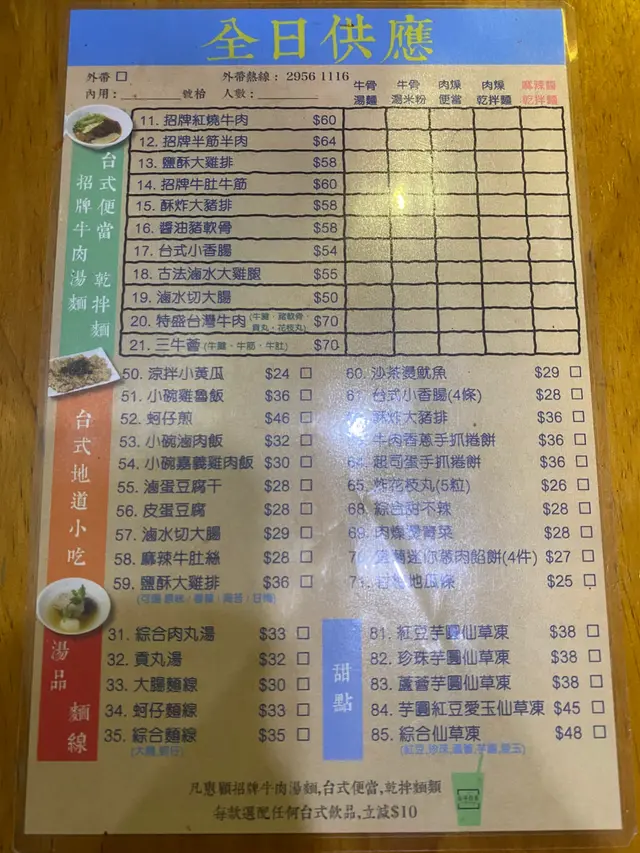 全日供應
外帶 □ 外帶熱線： 2956 1116
內用：________號枱 人數：________
牛骨湯麵 牛骨湯米粉 肉燥便當 肉燥乾拌麵 麻辣醬乾拌麵
台式便當 乾拌麵
招牌牛肉湯麵
11. 招牌紅燒牛肉 $60
12. 招牌半筋半肉 $64
13. 鹽酥大雞排 $58
14. 招牌牛肚牛筋 $60
15. 酥炸大豬排 $58
16. 醬油豬軟骨 $58
17. 台式小香腸 $54
18. 古法滷水大雞腿 $55
19. 滷水切大腸 $50
20. 特盛台灣牛肉 (牛腱、豬軟骨、貢丸、花枝丸) $70
21. 三牛薈 (牛腱、牛筋、牛肚) $70
台式地道小吃
50. 涼拌小黃瓜 $24 □
51. 小碗雞魯飯 $36 □
52. 蚵仔煎 $46 □
53. 小碗滷肉飯 $32 □
54. 小碗嘉義雞肉飯 $30 □
55. 滷蛋豆腐干 $28 □
56. 皮蛋豆腐 $28 □
57. 滷水切大腸 $29 □
58. 麻辣牛肚絲 $28 □
59. 鹽酥大雞排 $36 □
60. 沙茶燙魷魚 $29 □
61. 台式小香腸(4條) $28 □
酥炸大豬排 $36 □
牛肉香蔥手抓捲餅 $36 □
起司蛋手抓捲餅 $36 □
65. 炸花枝丸(5粒) $26 □
68. 綜合甜不辣 $28 □
69. 肉燥燙青菜 $28 □
迷你蔥肉餡餅(4件) $27 □
71. 甘梅地瓜條 $25 □
湯品 麵線
31. 綜合肉丸湯 $33 □
32. 貢丸湯 $32 □
33. 大腸麵線 $30 □
34. 蚵仔麵線 $33 □
35. 綜合麵線 $35 □
(大腸,蚵仔)
甜點
81. 紅豆芋圓仙草凍 $38 □
82. 珍珠芋圓仙草凍 $38 □
83. 蘆薈芋圓仙草凍 $38 □
84. 芋圓紅豆愛玉仙草凍 $45 □
85. 綜合仙草凍 $48 □
(紅豆,珍珠,蘆薈,芋圓,愛玉)
凡惠顧招牌牛肉湯麵,台式便當,乾拌麵類
每款選配任何台式飲品,立減$10